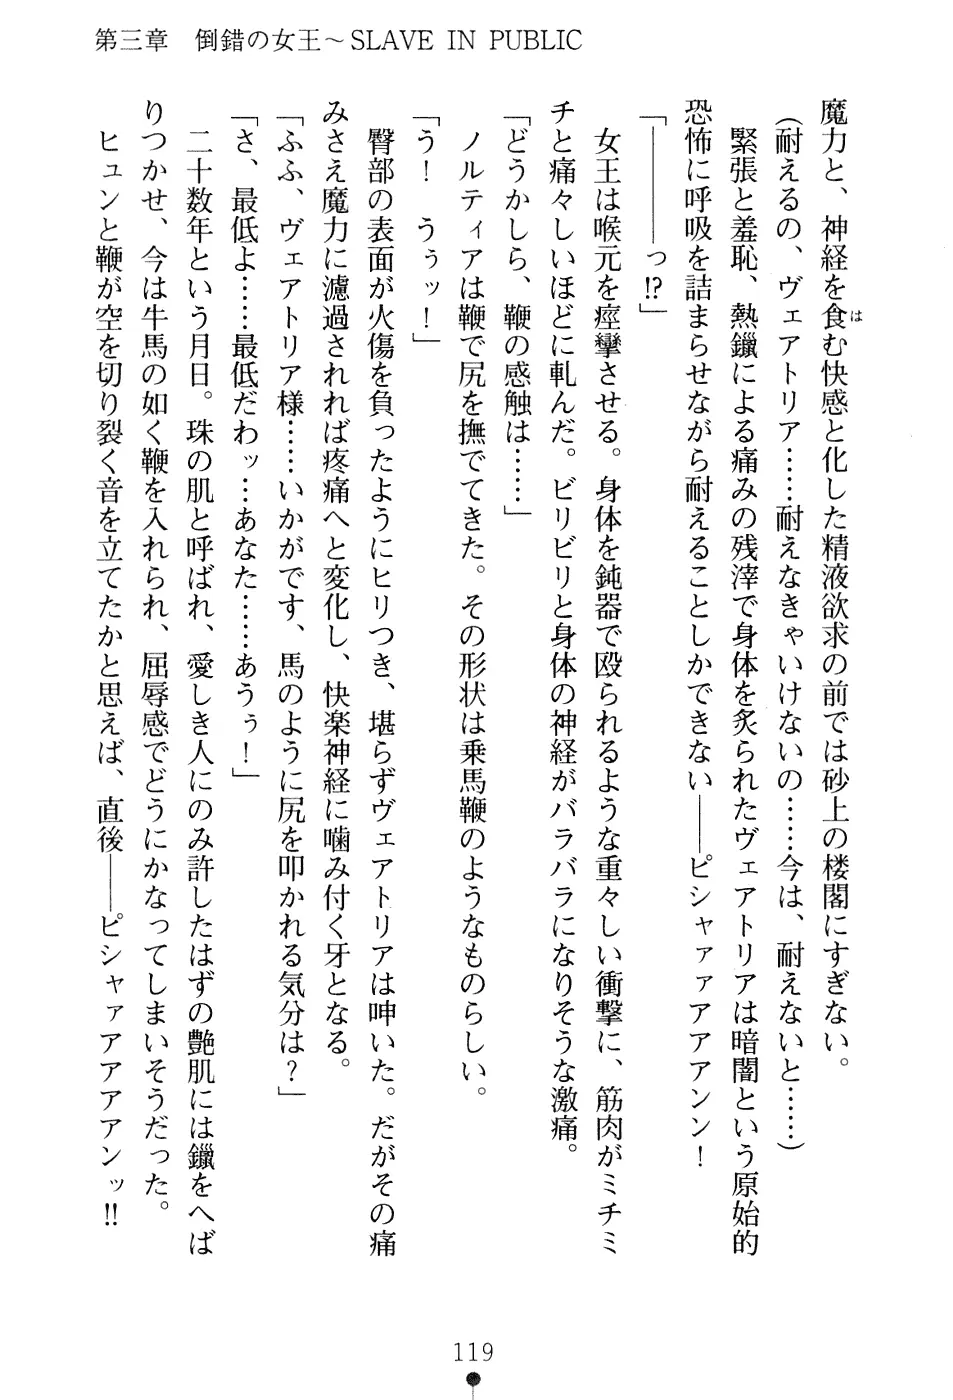 第三章　倒錯の女王～SLAVE IN PUBLIC
魔力と、神経を食む快感と化した精液欲求の前では砂上の楼閣にすぎない。
は
（耐えるの、ヴェアトリア……耐えなきゃいけないの……今は、耐えないと……）
　緊張と羞恥、熱鑞による痛みの残滓で身体を炙られたヴェアトリアは暗闇という原始的
恐怖に呼吸を詰まらせながら耐えることしかできない――ピシャァァアアアンン！
「――――っ!?」
　女王は喉元を痙攣させる。身体を鈍器で殴られるような重々しい衝撃に、筋肉がミチミ
チと痛々しいほどに軋んだ。ビリビリと身体の神経がバラバラになりそうな激痛。
「どうかしら、鞭の感触は……」
　ノルティアは鞭で尻を撫でてきた。その形状は乗馬鞭のようなものらしい。
「う！　うぅッ！」
　臀部の表面が火傷を負ったようにヒリつき、堪らずヴェアトリアは呻いた。だがその痛
みさえ魔力に濾過されれば疼痛へと変化し、快楽神経に噛み付く牙となる。
「ふふ、ヴェアトリア様……いかがです、馬のように尻を叩かれる気分は？」
「さ、最低よ……最低だわッ…あなた……あうぅ！」
　二十数年という月日。珠の肌と呼ばれ、愛しき人にのみ許したはずの艶肌には鑞をへば
りつかせ、今は牛馬の如く鞭を入れられ、屈辱感でどうにかなってしまいそうだった。
　ヒュンと鞭が空を切り裂く音を立てたかと思えば、直後――ピシャァアアアアンッ!!
119